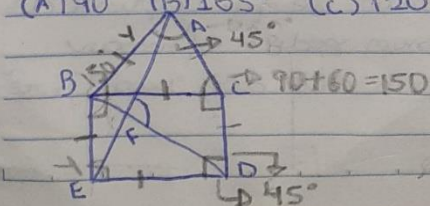 (A) 90 (B) 105 (C) 120
A
45°
150°
B
C
90+60=150
F
E
D
45°